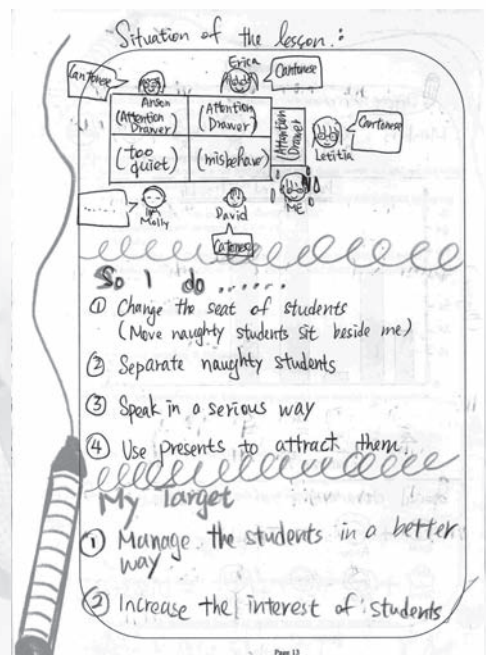 Situation of the lesson :
Erica
Cantonese
Cantonese
Anson
(Attention Drawer)
(Attention Drawer)
(Attention Drawer)
Cantonese
Letitia
(too quiet)
(misbehave)
ME
......
Molly
David
Catonese
So I do ......
① Change the seat of students
(Move naughty students sit beside me)
② Separate naughty students
③ Speak in a serious way
④ Use presents to attract them.
My Target
① Manage the students in a better
way.
② Increase the interest of students
Page 13